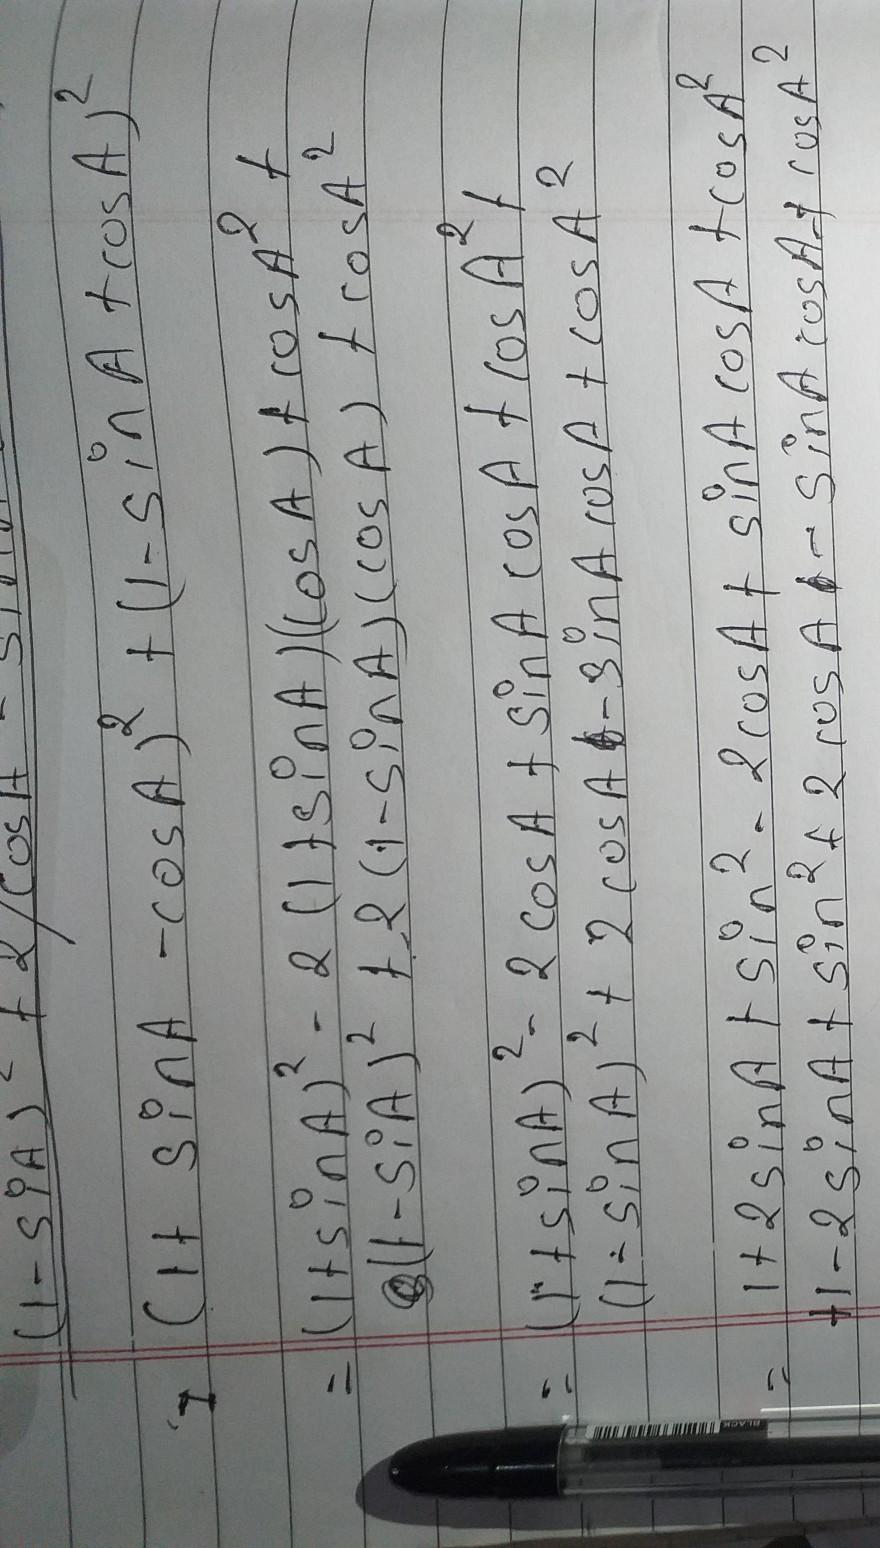 (1-siA)² + 2(cosA -
1 (1+ sinA -cosA)² + (1-sinA +cosA)²
= (1+sinA)² - 2 (1+sinA)(cosA) + cosA² +
(1-siA)² + 2 (1-sinA)(cosA) + cosA²
= (1+sinA)² - 2 cosA + sinA cosA + cosA² +
(1-sinA)² + 2 cosA - sinA cosA + cosA²
= 1+2sinA + sin² - 2cosA + sinA cosA + cosA²
+1-2sinA + sin² + 2 cosA - sinA cosA + cosA²
BLACK